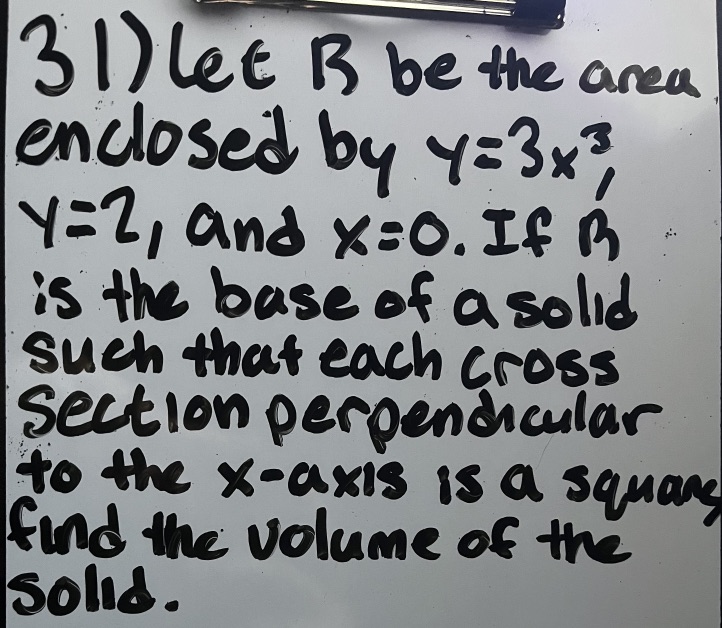 31) Let R be the area
enclosed by y=3x³,
y=2, and x=0. If R
is the base of a solid
such that each cross
section perpendicular
to the x-axis is a square,
find the volume of the
solid.